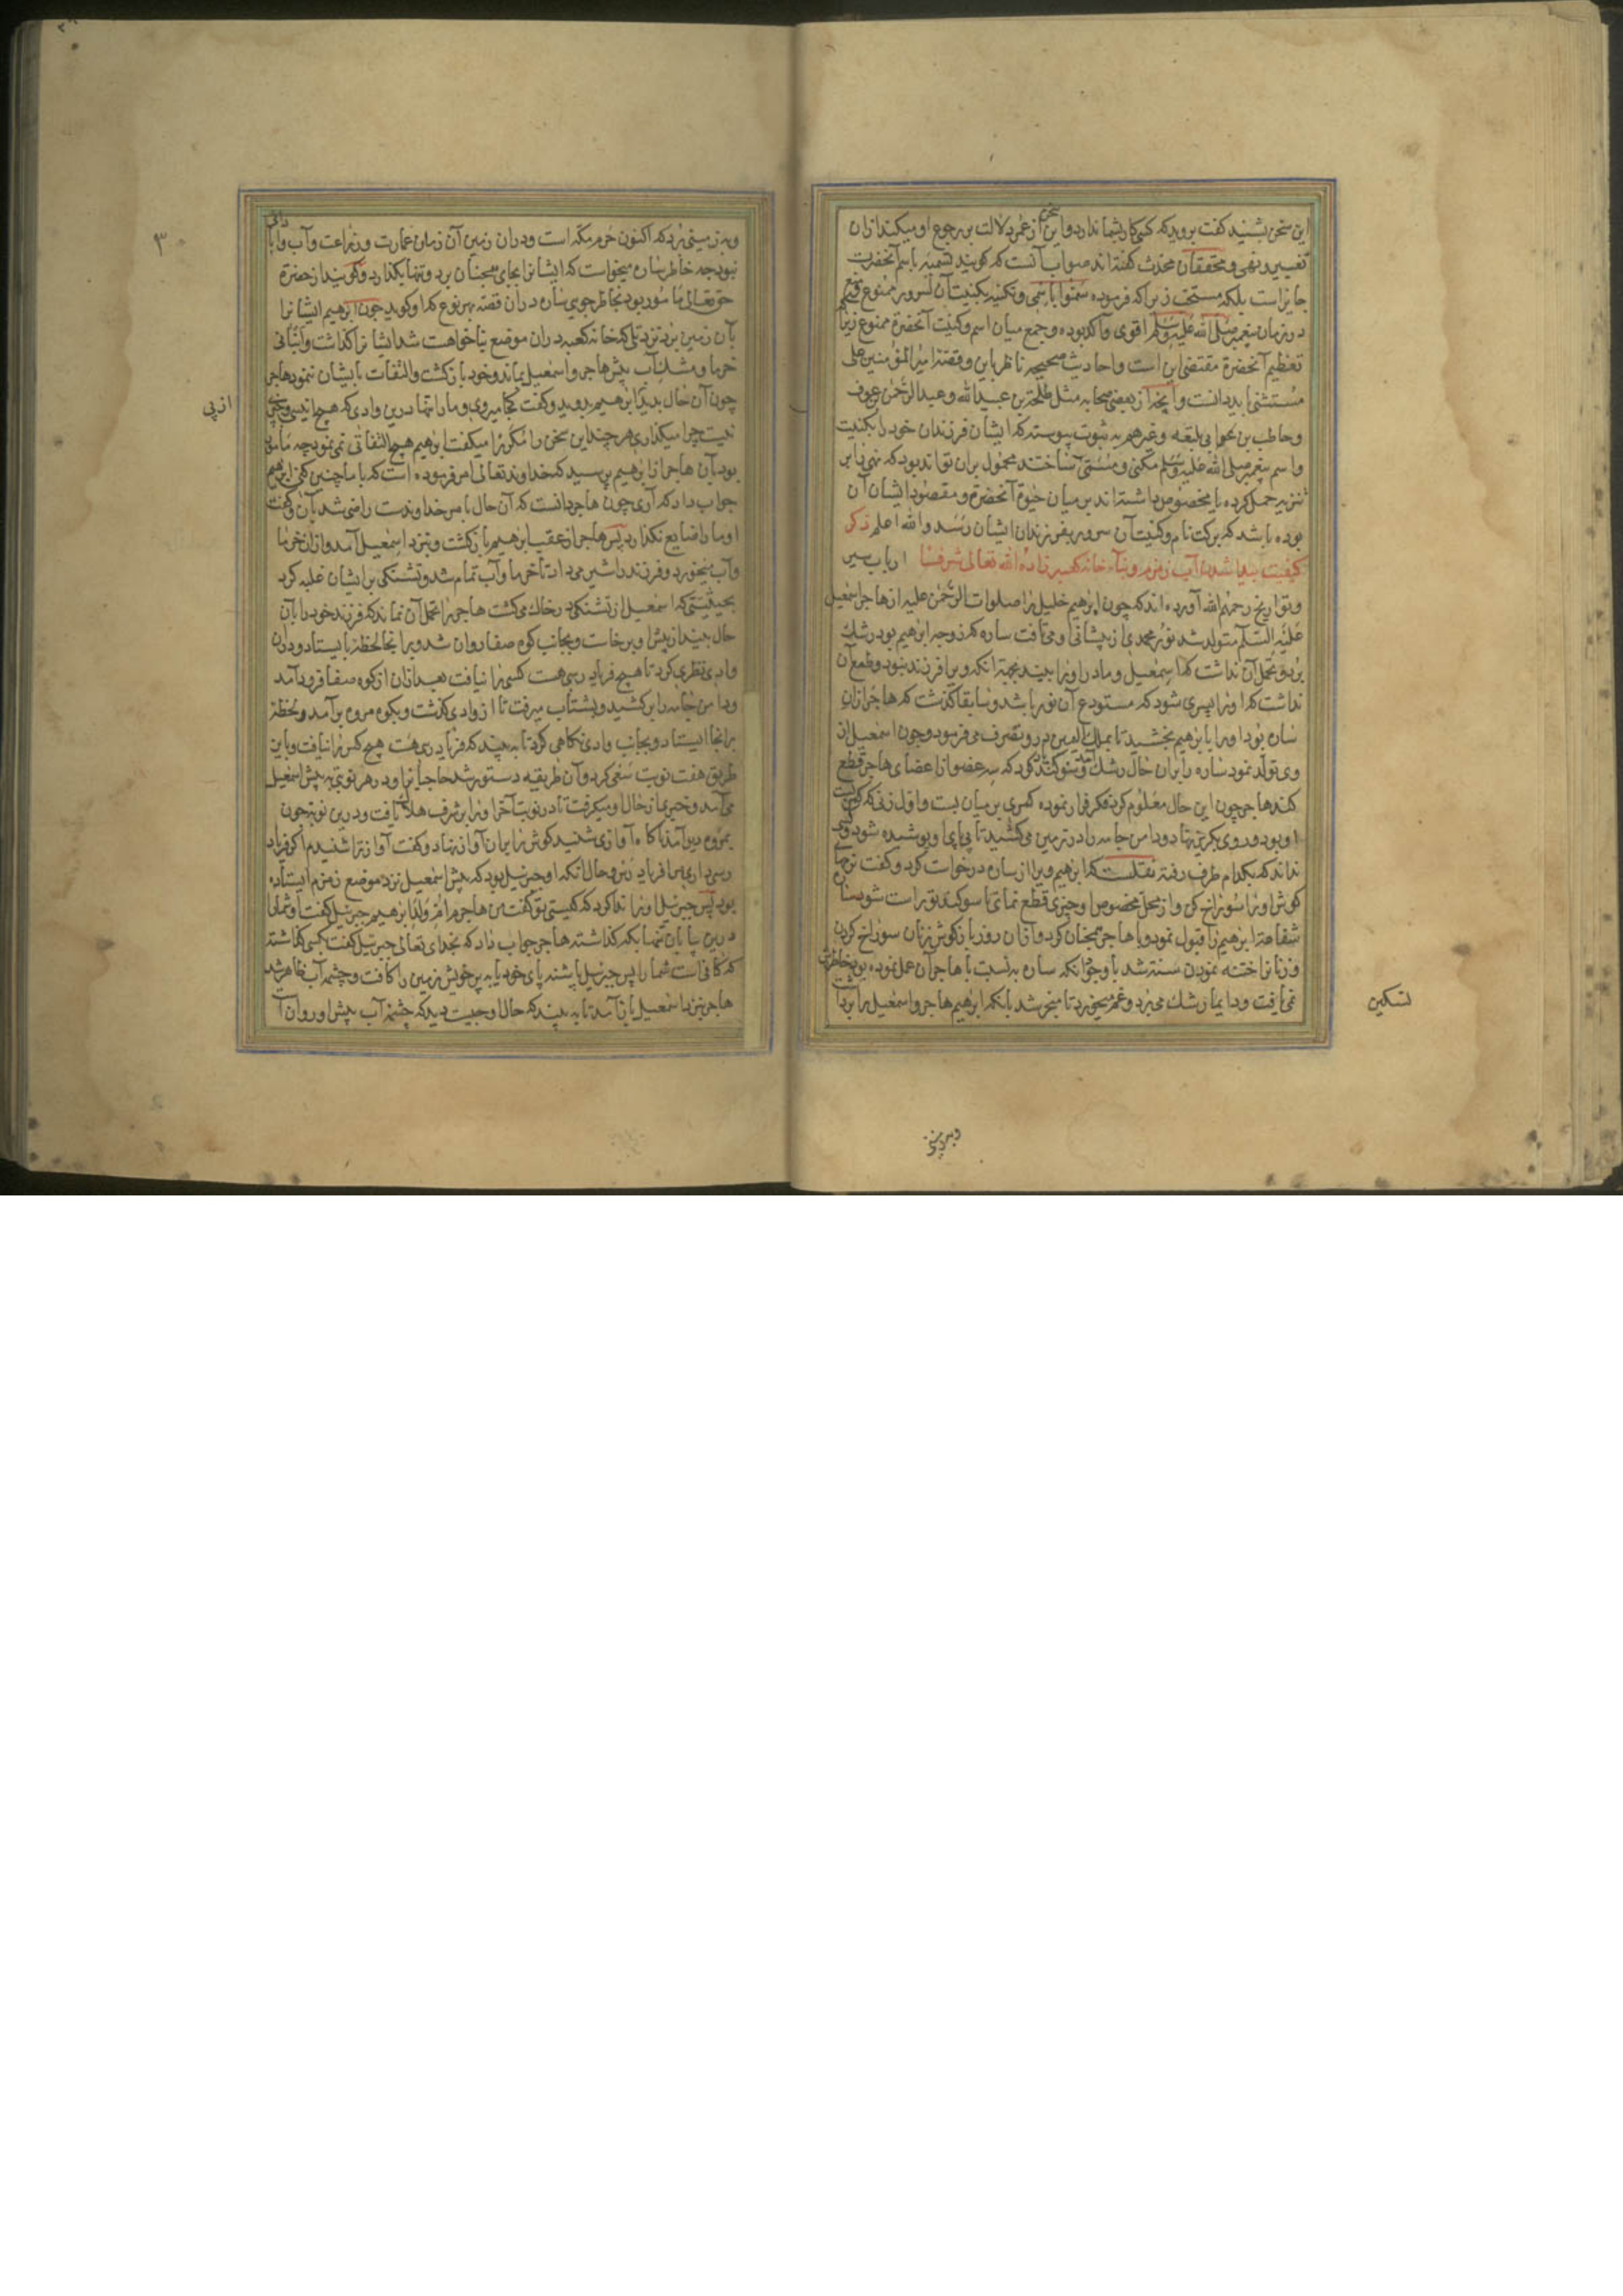 این سخن بشنید کفت بروید که کسی کار بشما ندارد و این سخن از عمر دلالت بر رجوع او میکند از ان
تغییر و نهی و محققان محدث کفته اند صواب آنست که کویند تسمیه باسم آنحضرت
جایز است بلکه مستحب زیرا که فرموده سموا باسمی و تکنیه بکنیت آن سرور ممنوع
در زمان پیغمبر صلی الله علیه وسلم اقوی و آکد بوده و جمع میان اسم و کنیت آنحضرة ممنوع زیرا
تعظیم آنحضرة مقتضی این است و احادیث صحیحه ناظر باین و قصه امیر المؤمنین علی
مستثنی باید دانست و آنچه از بعضی صحابه مثل طلحة بن عبید الله و عبد الرحمن عوف
و حاطب بن ابی بلتعه و غیرهم به ثبوت پیوسته که ایشان فرزندان خود را بکنیت
و اسم پیغمبر صلی الله علیه وسلم مکنی و مسمی ساختند محمول بران تواند بود که نهی را بر
تنزیه حمل کرده یا مخصوص داشته اند بر میان حیوة آنحضرة و مقصود ایشان آن
بوده باشد که برکت نام و کنیت آن سرور بفرزندان ایشان رسد والله اعلم ذکر
کیفیت پیدا شدن آب زمزم و بناء خانه کعبه زاده الله تعالی شرفا ارباب سیر
و تواریخ رحمهم الله آورده اند که چون ابرهیم خلیل را صلوات الرحمن علیه از هاجر اسمعیل
علیه السلم متولد شد نور محمدی از پیشانی او می تافت ساره که زوجه ابرهیم بود رشک
برد و تحمل آن نداشت که اسمعیل و مادر او را بیند بجهة انکه ویرا فرزند نبود و طمع آن
نداشت که او را پسری شود که مستودع آن نور باشد و سابقا کذشت که هاجر از ان
ساره بود او را بابرهیم بخشید تا بملک الیمین در و تصرف می فرمود و چون اسمعیل از
وی تولد نمود ساره را بران حال رشک آمد و سوکند خورد که سه عضو از اعضای هاجر قطع
کند هاجر چون این حال معلوم کرد فکر فرار نموده کمری بر میان بست و اول زنی که کمر بست
او بود و روی بکریز نهاد و دامن جامه را در زمین می کشید تا پی پای او پوشیده شود و کسی
نداند که بکدام طرف رفته نقلست که ابرهیم ویرا از ساره درخواست کرد و کفت
کوش او را سوراخ کن و از محل مخصوص او چیزی قطع نمای تا سوکند تو راست شود ساره
شفاعة ابرهیم را قبول نمود و با هاجر همچنان کرد و از ان روز باز کوش زنان سوراخ کردن
و زنانرا ختنه نمودن سنة شد با وجود انکه ساره به نسبت با هاجر آن عمل نموده بود خاطرش
نمی یافت و دایما رشک می برد و غم میخورد تا منجر شد بانکه ابرهیم هاجر و اسمعیل را بردا
تسکین
و بزمینی
٣٠
و بزمینی برد که اکنون حرم مکه است و در ان زمین آن زمان عمارت و زراعت و آب و آبادانی
نبود چه خاطر ساره میخواست که ایشانرا بجای همچنان برد و تنها بکذارد و کویند از حضرة
حق تعالی مامور بود بخاطر جویی ساره در ان قصه بهر نوع که او کوید چون ابرهیم ایشانرا
بآن زمین برد نزد تلی که خانه کعبه دران موضع بنا خواهست شد ایشانرا کذاشت و انبانی
خرما و مشک آب پیش هاجر و اسمعیل بماند و خود باز کشت و التفات بایشان ننمود هاجر
چون آن حال بدید از پی ابرهیم بدوید و کفت کجا میروی و ما را تنها درین وادی که هیچ انیسی
نیست چرا میکذاری هر چند این سخن را مکرر میکفت ابرهیم هیچ التفاتی نمی نمود چه مامور
بود بآن هاجر از ابرهیم پرسید که خداوند تعالی امر فرموده است که با ما چنین کنی ابرهیم
جواب داد که آری چون هاجر دانست که آن حال بامر خداوندست راضی شد بآن و کفت
او ما را ضایع نکذارد پس هاجر از عقب ابرهیم باز کشت و بنزد اسمعیل آمد و از ان خرما
و آب میخورد و فرزند را شیر می داد تا خرما و آب تمام شد و تشنکی بر ایشان غلبه کرد
بحیثیتی که اسمعیل از تشنکی در خاک می کشت هاجر را تحمل آن نماند که فرزند خود را بآن
حال بیند از پیش او برخاست و بجانب کوه صفا روان شد و برانجا لحظه بایستاد و دران
وادی نظری کرد تا هیچ فریاد رسی هست کسی را نیافت بعد ازان از کوه صفا فرود آمد
و دامن جامه را بر کشید و بشتاب میرفت تا از وادی کذشت و بکوه مروه برآمد و لحظه
برانجا ایستاد و بجانب وادی نکاهی کرد تا به بیند که فریاد رسی هست هیچ کس را نیافت و باین
طریق هفت نوبت سعی کرد و آن طریقه دستور شد حاجیانرا و در هر نوبتی به پیش اسمعیل
می آمد و خبری از حال او میکرفت تا در نوبت آخر او را بر شرف هلاک یافت و درین نوبة چون
بمروه برآمد ناکاه آوازی شنید کوش را بران آواز نهاد و کفت آواز ترا شنیدم اکر فریاد
رسی داری ما را فریاد رس و حال انکه او جبرئیل بود که پیش اسمعیل نزد موضع زمزم ایستاده
بود پس جبرئیل او را ندا کرد که کیستی تو کفت من هاجرم ام ولد ابرهیم جبرئیل کفت او شما را
درین بیابان تنها بکه کذاشته هاجر جواب داد که بخدای تعالی جبرئیل کفت بکسی کذاشته
که کافی است شما را پس جبرئیل با شنه پای خود یا به پر خویش زمین را کافت و چشمه آب ظاهر شد
هاجر بنزد اسمعیل باز آمد تا به بیند که حال او چیست دید که چشمه آب پیش او روان
از پی